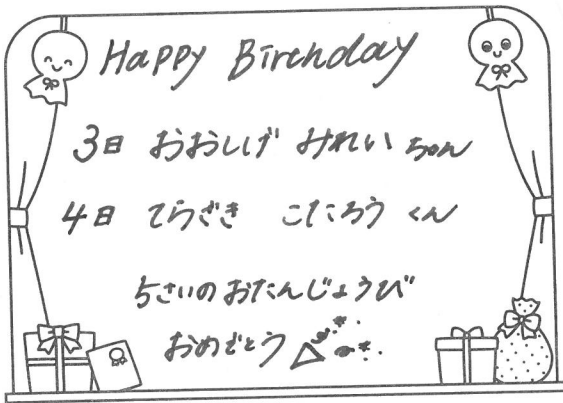 Happy Birthday
3日 おおしげ みれい ちゃん
4日 てらざき こたろう くん
5さいのおたんじょうび
おめでとう